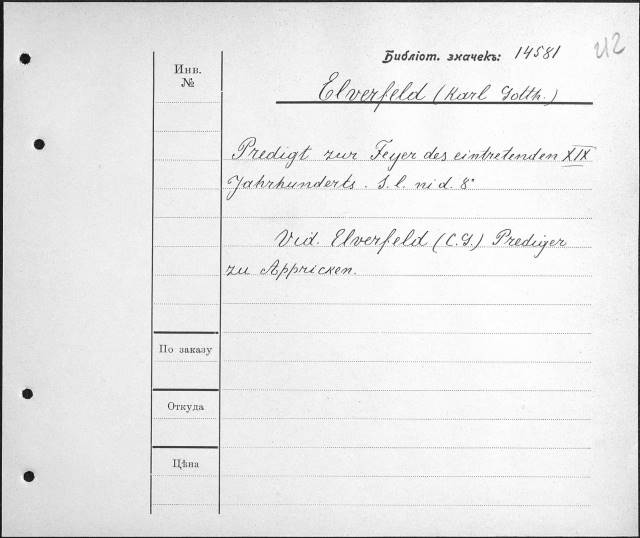 Библіот. значекъ: 14581
Инв.
№
Elverfeld (Karl Gotth.)
Predigt zur Feyer des eintretenden XIX
Jahrhunderts. S. l. ni d. 8°
Vid. Elverfeld (C.G.) Prediger
zu Appricken.
По заказу
Откуда
Цѣна